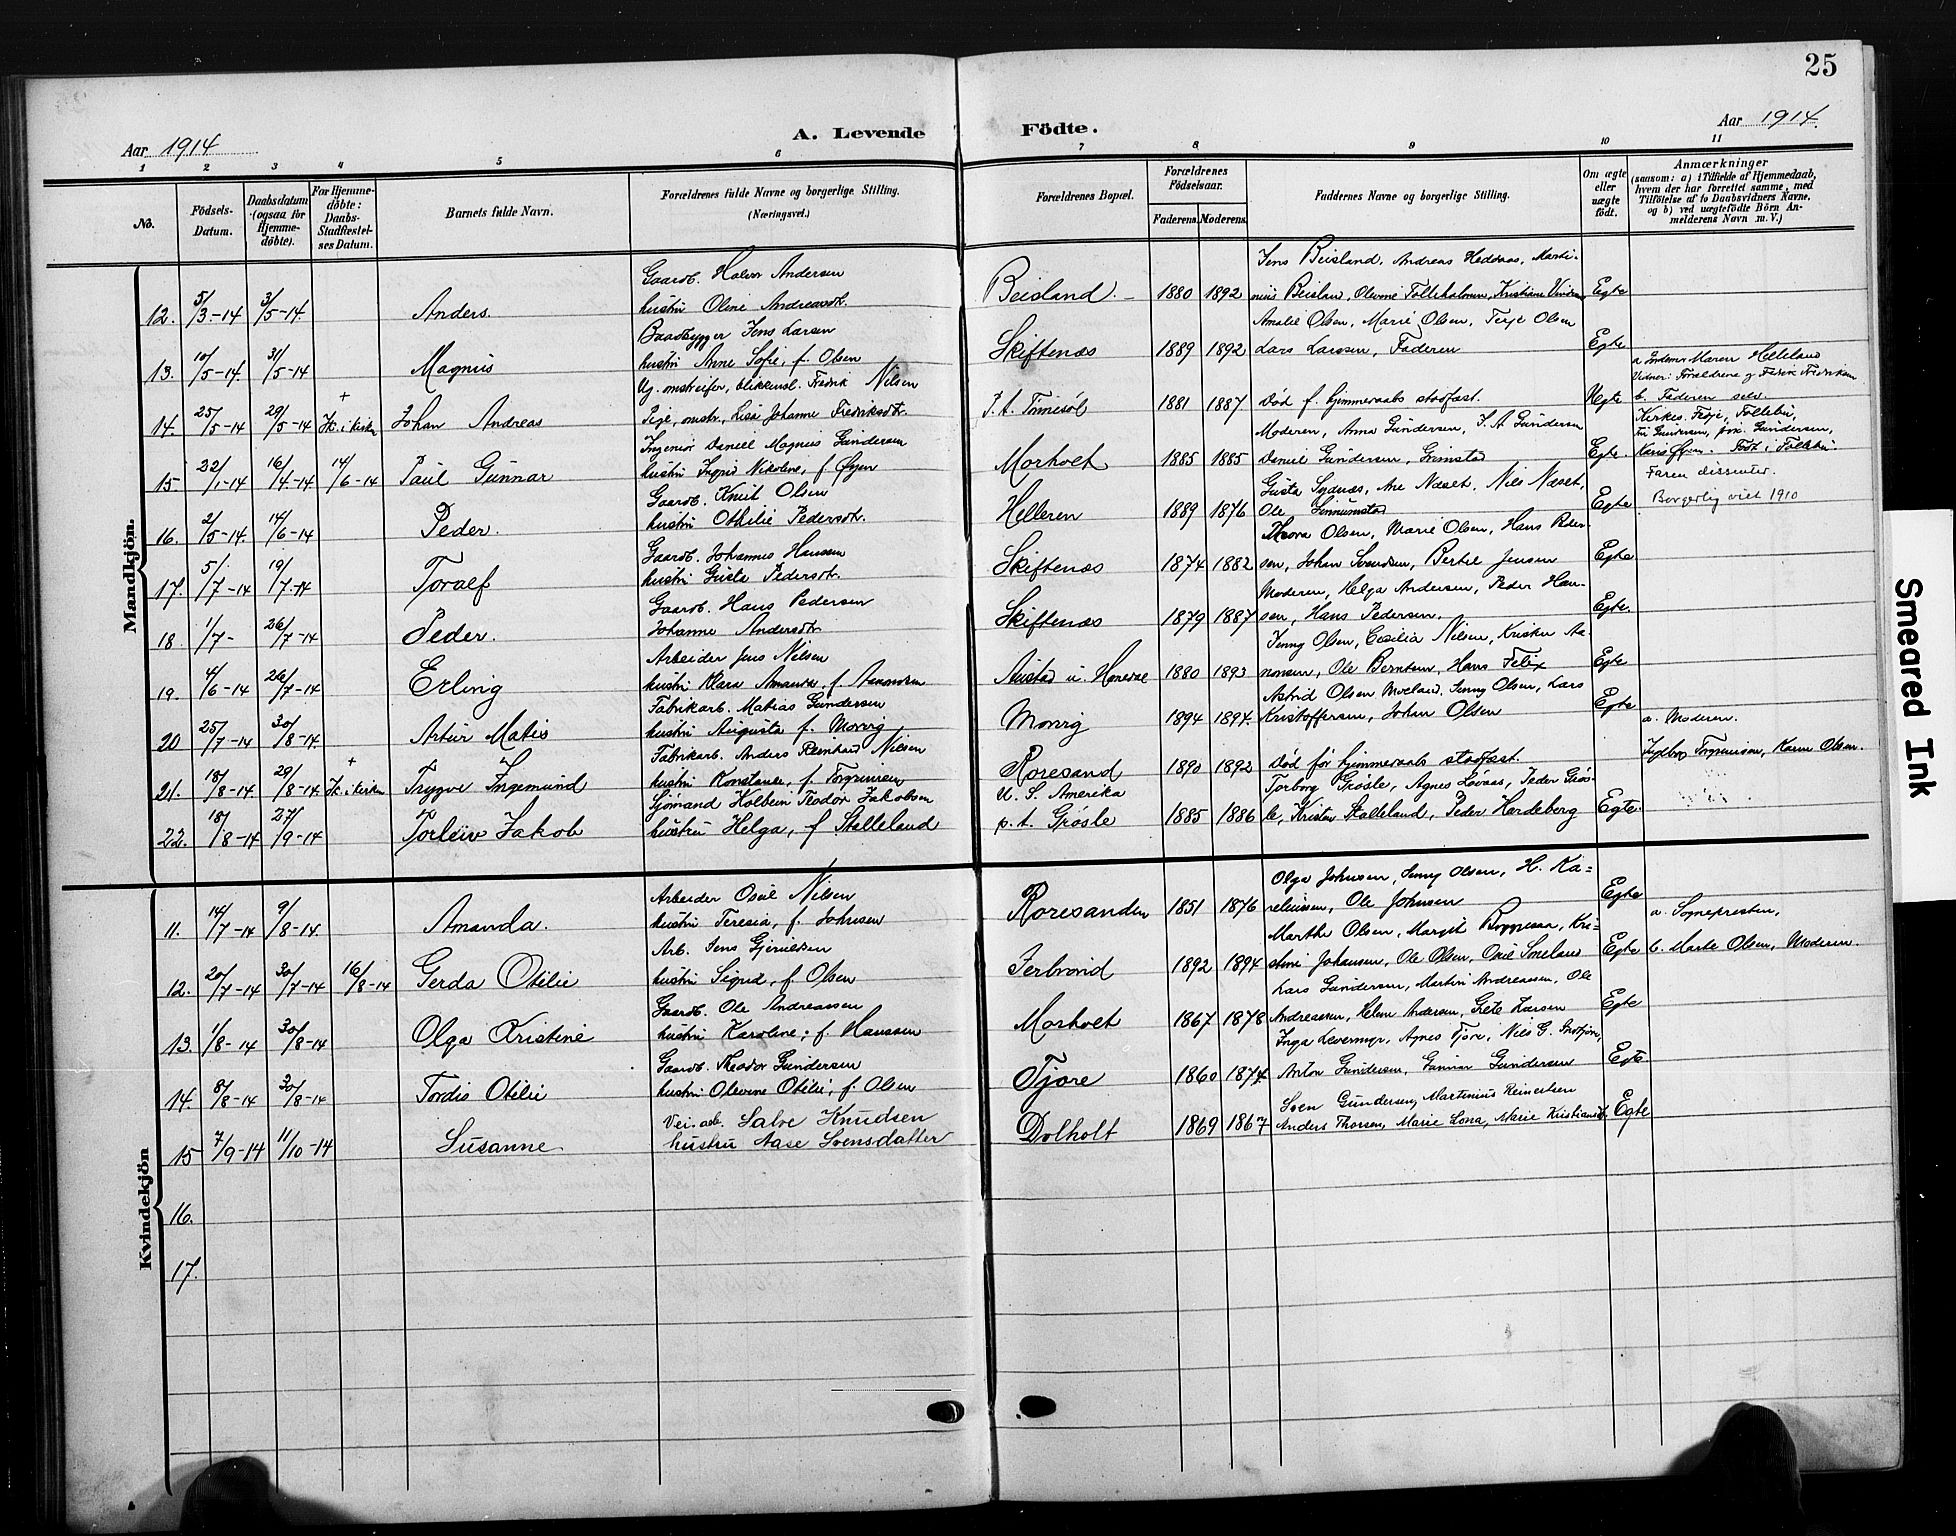 25
Aar 1914
A. Levende Födte.
Aar 1914.
1 2 3 4 5 6 7 8 9 10 11
No.
Födsels-Datum.
Daabsdatum (ogsaa for Hjemmedöbte).
For Hjemmedöbte: Daabs-Stadfæstelses Datum.
Barnets fulde Navn.
Forældrenes fulde Navne og borgerlige Stilling.
(Næringsvei.)
Forældrenes Bopæl.
Forældrenes Födselsaar.
Faderens. Moderens.
Faddernes Navne og borgerlige Stilling.
Om ægte eller uægte födt.
Anmærkninger
(saasom: a) i Tilfælde af Hjemmedaab,
hvem der har forrettet samme, med
Tilföielse af to Daabsvidners Navne,
og b) ved uægtefödte Börn An-
melderens Navn m. V.)
Mandkjön.
Gaardb. Halvor Andersen
Jens Beisland, Andreas Heddaas, Marti-
12. 5/3-14 3/5-14. Anders. hustru Oline Andreasdt. Beisland. 1880 1892 nius Beisland, Olevine Tolleholmen, Kristiane Egte
Baadbygger Jens Larsen
Amalie Olsen, Marie Olsen, Terje Olsen
13. 10/5-14. 31/5-14 Magnus hustru Anne Sofie, f. Olsen Skiftenæs 1889 1892 Lars Larssen, Faderen Egte
Ug. omstreifer, blikkensl. Fredrik Nilsen
a Maren Helleland
Vidner: Forældrene og Fredrik Fredriksen
14. 25/5-14 29/5-14 + Johan Andreas Pige, omstr., Lise Johanne Fredriksdt. P. t. 1881 1887 Død f. hjemmedaabs stadfæst. Uegte b. Faderen selv.
Ingeniør Daniel Magnus Gundersen
Moderen, Anna Gundersen, S. A Gundersen
15. 22/1-14 16/4-14 14/6-14 Paul Gunnar hustru Ingrid Nikoline, f Øyen Morholt 1885 1885 Daniel Gundersen, Grimstad Egte. Født i Follebu.
Gaardb. Knut Olsen
Faren dissenter.
16. 2/5-14. 14/6-14 Peder. hustru Othilie Pedersdt. Helleren 1889 1876 Ole Egte Borgerlig viet 1910
Gaardb. Johannes Hansen
Thora Olsen, Marie Olsen, Hans Peder-
17. 5/7-14 19/7-14 Toralf hustru Gusta Pedersdt. Skiftenæs 1874 1882 sen, Johan Svendsen, Bertil Jensen Egte
Gaardb. Hans Pedersen
Moderen, Helga Andersen, Peder Han-
18. 1/7- 26/7-14 Peder. Johanne Andersdt. Skiftenæs 1879 1887 sen, Hans Pedersen. Egte.
Arbeider Jens Nilsen
Jenny Olsen, Cecilia Nilsen, Aa-
19. 4/6-14 26/7-14 Erling hustru Klara Amanda, f. Aanonsen 1880 1893 nonsen, Ole Berntsen, Hans Felix Egte
Fabrikarb. Matias Gundersen
Astrid Olsen Moeland, Jenny Olsen, Lars
20 25/7-14 30/8-14. Artur Matis hustru Augusta f. Morvig Morvig 1894 1894. Kristoffersen, Johan Olsen Egte
Fabrikarb. Anders Reinhard Nilsen
a. Moderen.
21. 18/8-14. 29/8-14 + Trygve Ingemund hustru Konstance, f. Torgrimsen Roresand 1890 1892 Død før hjemmedaabs stadfæst. Ingeborg Torgrimsen, Karen Olsen.
Sjömand Kolbein Teodor Jakobsen
U. S. Amerika
Torborg Grøsle, Agnes Løvaas, Peder Grøs-
22. 18/8-14 27/9-14 Torleiv Jakob hustru Helga, f Stalleland p. t. Grøsle 1885 1886 le, Kristen Stalleland, Peder Hardeberg Egte.
Kvindekjön
Arbeider Osuil Nilsen
Olga Johnsen, Jenny Olsen, H. Ka=
11. 14/7-14 9/8-14. Amanda. hustru Teresia, f. Johnsen Roresanden 1851 1876 reliussen, Ole Johnsen Egte
Arb. Jens Gjeruldsen
Marthe Olsen, Margit Kri=
a. Sognepresten,
12. 20/7-14 30/7-14 16/8-14 Gerda Otilie hustru Sigrid, f. Olsen 1892 1894 stine Johansen, Ole Olsen, Osuil Smeland Egte b. Marte Olsen, Moderen
Gaardb. Ole Andreassen
Lars Gundersen, Martin Andreassen, Ole
13. 1/8-14 30/8-14 Olga Kristine hustru Karoline; f Hanssen Morholt 1867 1878 Andreassen, Helene Andersen, Grete Larsen Egte
Gaardb. Theodor Gundersen
Inga Levermyr, Agnes Tjore, Nils G.
14. 8/8-14 30/8-14 Tordis Otilie hustru Olevine Otilie, f. Olsen Tjore 1860 1874 Anton Gundersen, Gunnar Gundersen Egte
Vei.arb. Salve Knudsen
Sven Gundersen, Martinius Reinertsen
15 7/9-14 11/10-14 Susanne hustru Aase Svensdatter Dolholt 1869 1867 Anders Thorsen, Marie Lona, Marie Egte
16.
17.
Smeared Ink